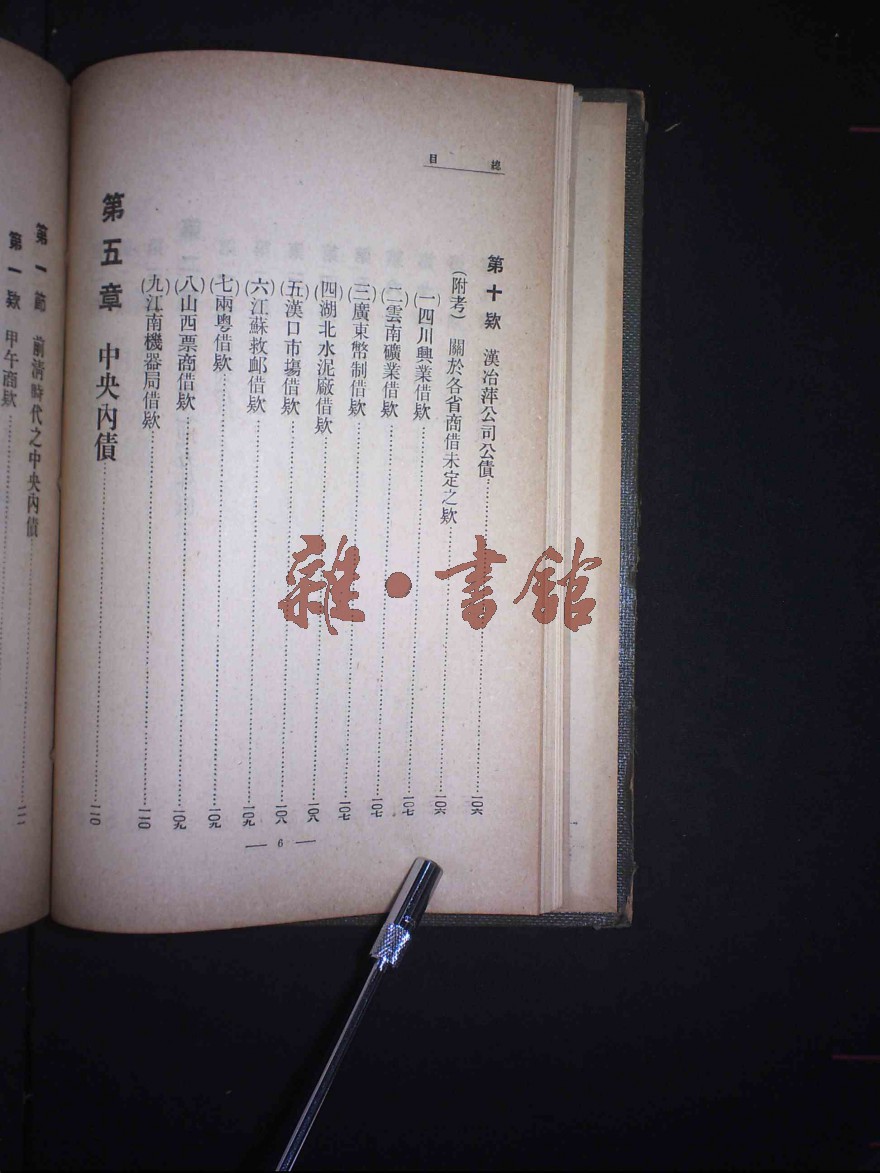 總目
第十欵 漢冶萍公司公債 一〇六
(附考) 關於各省商借未定之欵 一〇六
(一)四川興業借欵 一〇七
(二)雲南礦業借欵 一〇七
(三)廣東幣制借欵 一〇七
(四)湖北水泥廠借欵 一〇八
(五)漢口市塲借欵 一〇八
(六)江蘇救卹借欵 一〇九
(七)兩粵借欵 一〇九
(八)山西票商借欵 一〇九
(九)江南機器局借欵 一一〇
第五章 中央內債 一一〇
— 6 —
第一節 前清時代之中央內債
第一欵 甲午商欵
雜·書館